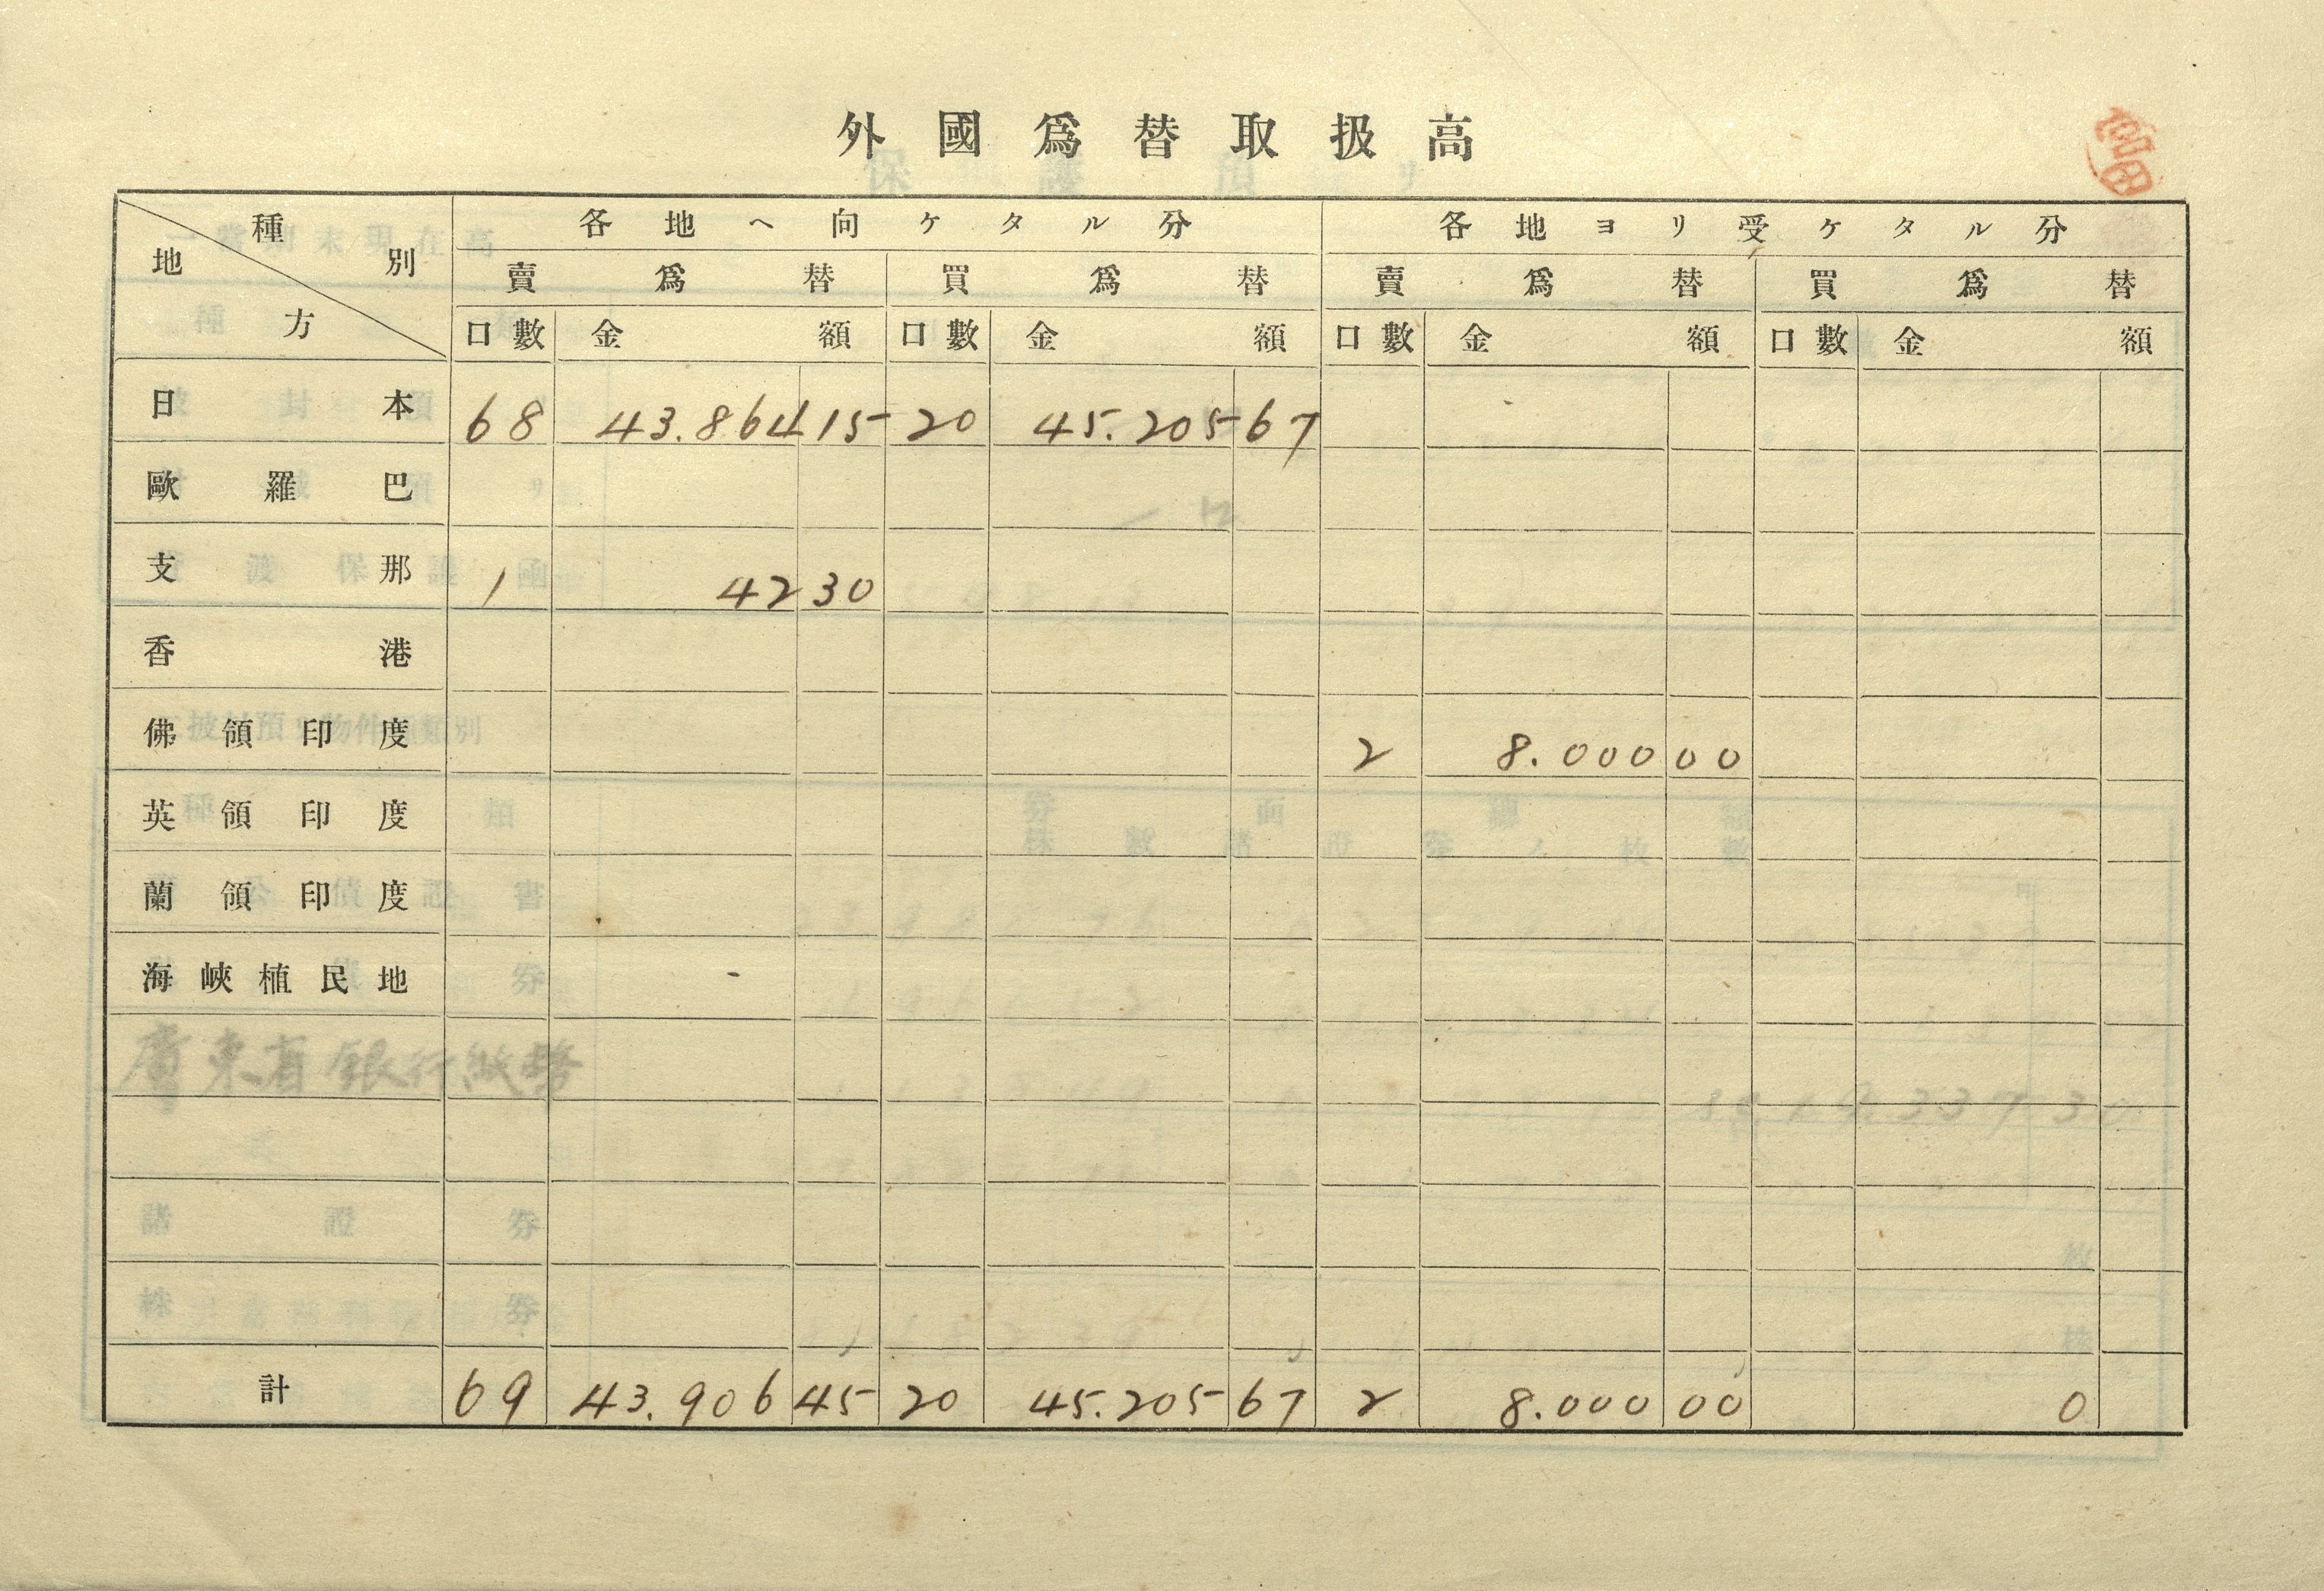 外國爲替取扱高
種別 地方 各地ヘ向ケタル分 各地ヨリ受ケタル分
賣爲替 買爲替 賣爲替 買爲替
口數 金額 口數 金額 口數 金額 口數 金額
日本 68 43.864 15 20 45.205 67
歐羅巴
支那 1 42 30
香港
佛領印度 2 8.000 00
英領印度
蘭領印度
海峽植民地
計 69 43.906 45 20 45.205 67 2 8.000 00 0